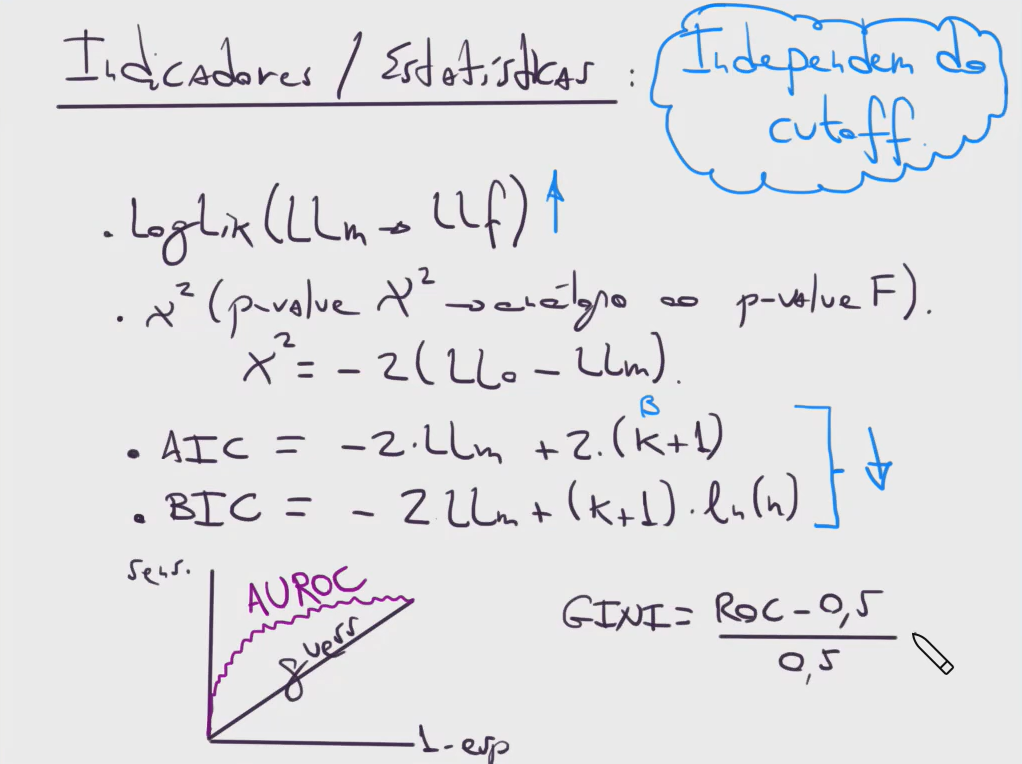 Indicadores / Estatísticas :
Independem do
cutoff.
. LogLik (LLm → LLf) ↑
. χ² (p-value χ² → análogo ao p-value F).
χ² = - 2 (LL0 - LLm).
β
. AIC = -2.LLm + 2.(k+1)
. BIC = - 2 LLm + (k+1) . ln(n)
sens.
AUROC
guess
1-esp
GINI = ROC - 0,5
0,5